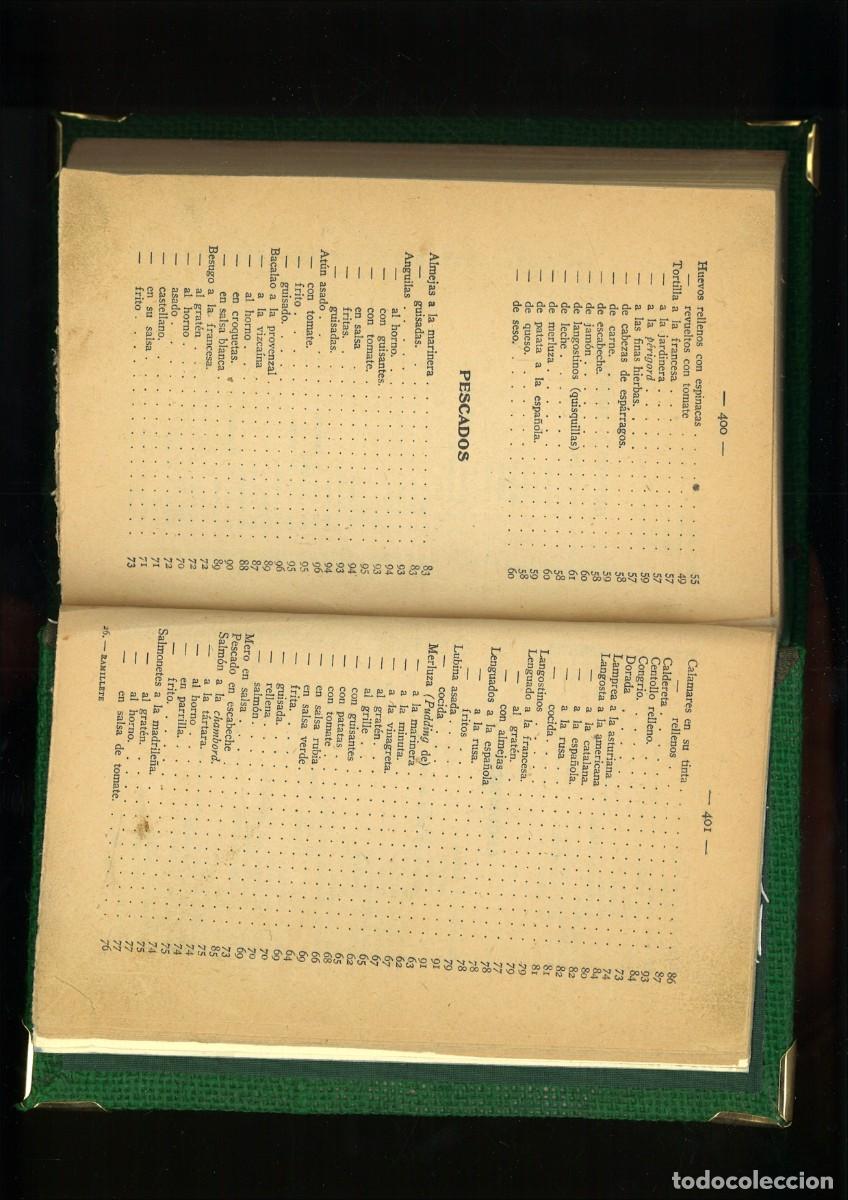 — 400 —
Huevos rellenos con espinacas . . . . 55
— revueltos con tomate . . . . 49
Tortilla a la francesa . . . . 57
— a la jardinera . . . . 57
— a la périgord . . . . 59
— a las finas hierbas. . . . 57
— de cabezas de espárragos. . . . 58
— de carne. . . . 58
— de escabeche. . . . 59
— de jamón. . . . 60
— de langostinos (quisquillas) . . . . 61
— de leche. . . . 58
— de merluza. . . . 60
— de patata a la española. . . . 59
— de queso. . . . 58
— de seso. . . . 60
PESCADOS
Almejas a la marinera . . . . 83
— guisadas. . . . 83
Anguilas . . . . 93
— al horno. . . . 94
— con guisantes. . . . 93
— con tomate. . . . 94
— en salsa . . . . 95
— fritas. . . . 94
— guisadas. . . . 94
Atún asado. . . . 96
— con tomate. . . . 95
— frito. . . . 95
— guisado. . . . 96
Bacalao a la provenzal . . . . 89
— a la vizcaína . . . . 87
— al horno. . . . 88
— en croquetas. . . . 90
— en salsa blanca . . . . 89
Besugo a la francesa. . . . 72
— al gratén. . . . 72
— al horno . . . . 70
— asado. . . . 72
— castellano. . . . 71
— en su salsa. . . . 71
— frito . . . . 73
— 401 —
Calamares en su tinta . . . . 86
— rellenos . . . . 87
Caldereta . . . . 93
Centollo relleno. . . . 84
Congrio. . . . 73
Dorada . . . . 74
Lamprea a la asturiana . . . . 84
Langosta a la americana . . . . 80
— a la catalana. . . . 82
— a la española. . . . 82
— a la rusa . . . . 81
— cocida. . . . 81
Langostinos . . . . 79
Lenguado a la francesa. . . . 79
— al gratén. . . . 77
— con almejas . . . . 78
Lenguados a la española . . . . 78
— a la rusa. . . . 78
— fritos . . . . 79
Lubina asada . . . . 91
— cocida . . . . 91
Merluza (Pudding de) . . . . 63
— a la marinera . . . . 62
— a la minuta. . . . 67
— a la vinagreta. . . . 67
— al gratén. . . . 65
— al grille . . . . 62
— con guisantes . . . . 65
— con patatas . . . . 68
— con tomate . . . . 66
— en salsa rubia . . . . 60
— en salsa verde . . . . 64
— frita. . . . 69
— guisada. . . . 70
— rellena . . . . 70
— salmón. . . . 69
Mero en salsa. . . . 73
Pescado en escabeche . . . . 85
Salmón a la chambord. . . . 75
— a la tártara. . . . 74
— al horno. . . . 74
— en parrilla. . . . 75
— frito. . . . 74
Salmonetes a la madrileña. . . . 77
— al gratén. . . . 77
— al horno. . . . 76
— en salsa de tomate.
26. — RAMILLETE
todocoleccion